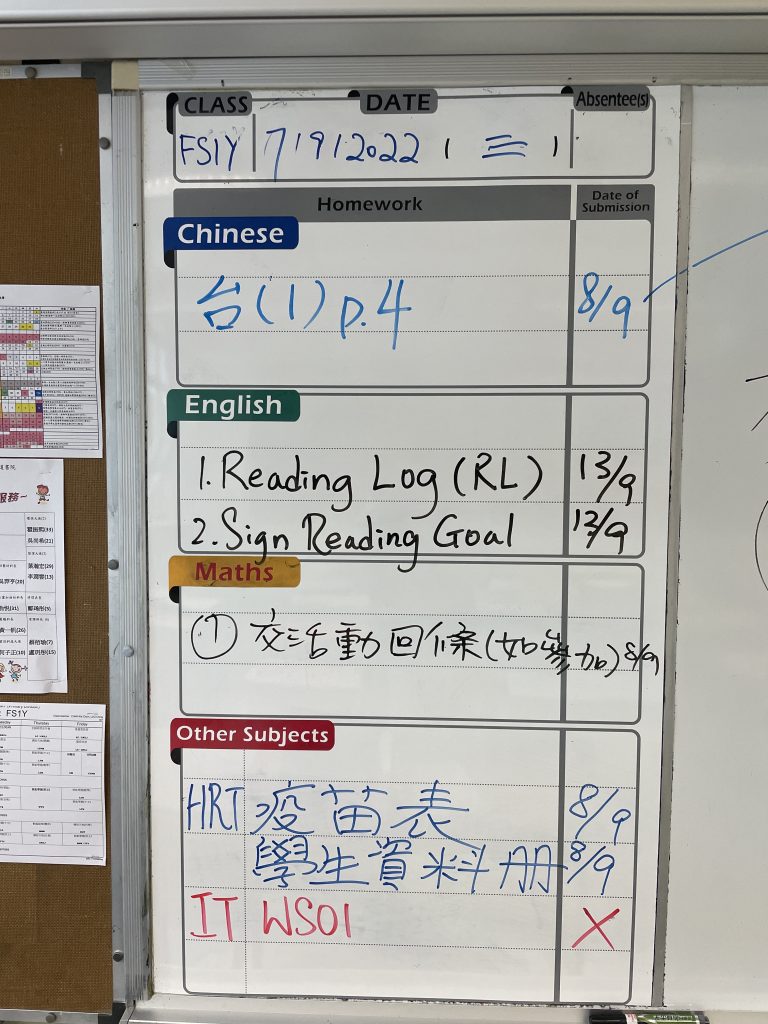 CLASS DATE Absentee(s)
FS1Y 7/9/2022 ( 三 )
Homework Date of Submission
Chinese
台(1) p.4 8/9
English
1. Reading Log (RL) 13/9
2. Sign Reading Goal 13/9
Maths
① 交活動回條(如參加) 8/9
Other Subjects
HRT 疫苗表 8/9
學生資料册 8/9
IT WS01 X
服務~
FS1Y
Thursday Friday